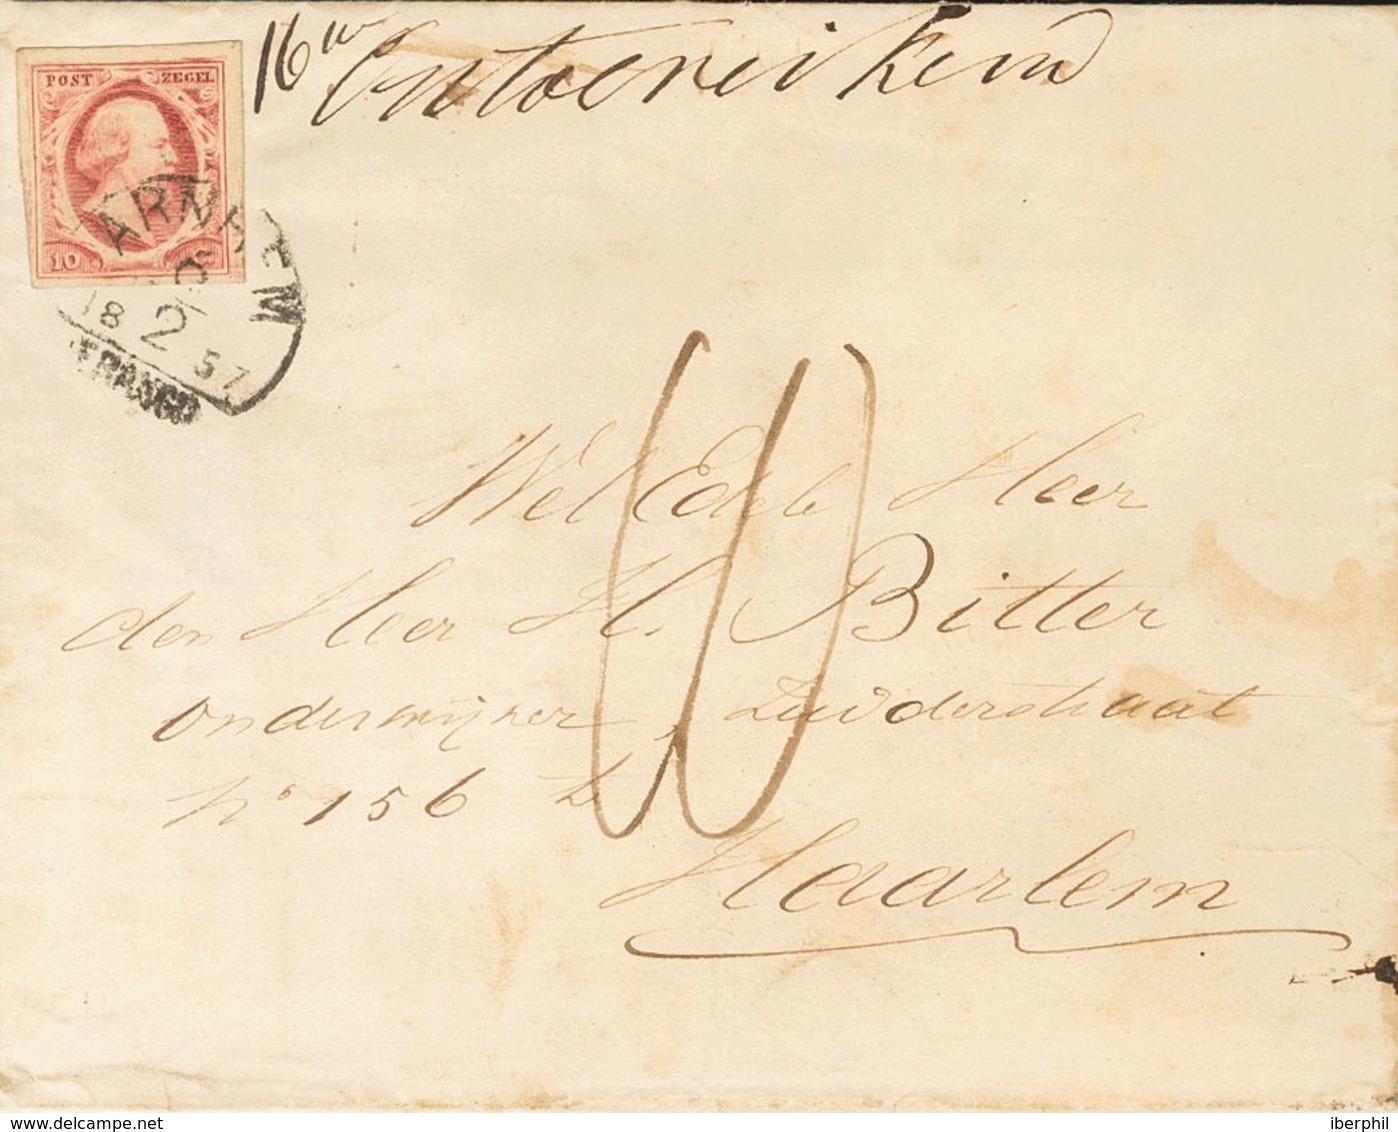 16 w Ontoereikend
POST ZEGEL
10 C
ARNHEM
2
18 57
FRANCO
10
Wel Edele Heer
den Heer H. Bitter
onderwijzer, Zuiderstraat
No 156 b
Haarlem
delcampe.net
iberphil